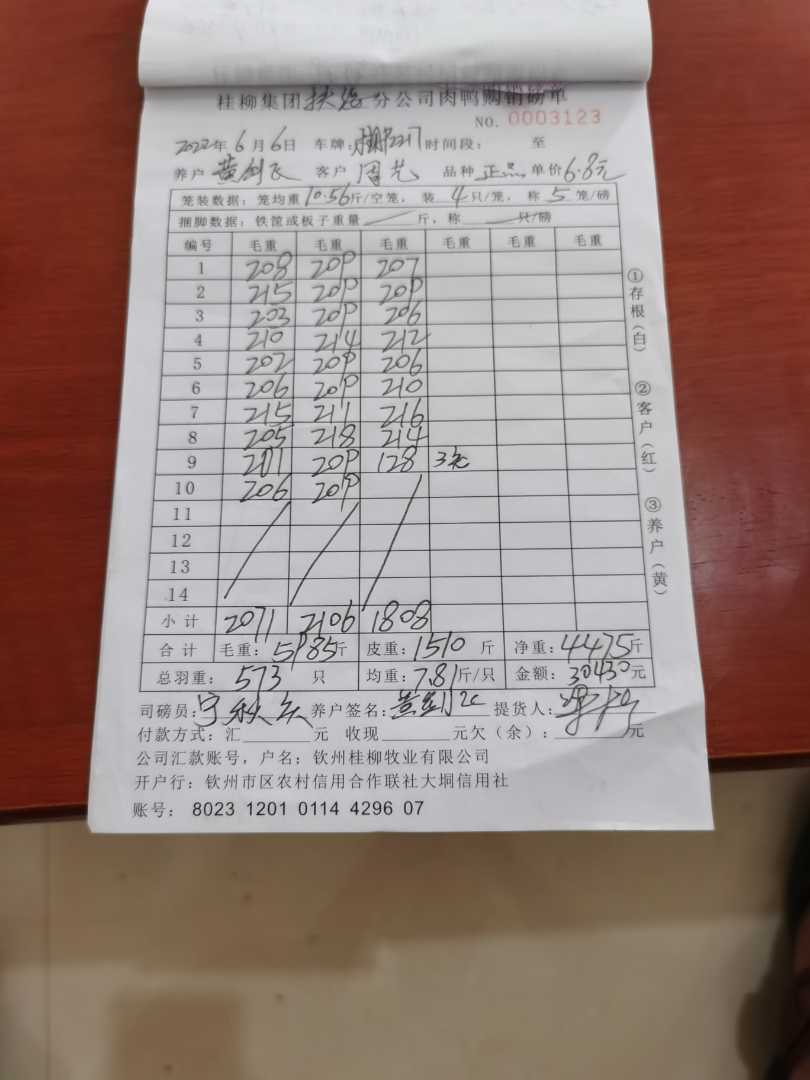 桂柳集团扶绥分公司肉鸭购销磅单
NO. 0003123
2022年6月6日 车牌: 时间段: 至
养户 黄剑飞 客户 周艺 品种 正品 单价6.8元
笼装数据: 笼均重10.56斤/空笼, 装4只/笼, 称5笼/磅
捆脚数据: 铁筐或板子重量 斤, 称 只/磅
编号 毛重 毛重 毛重 毛重 毛重 毛重
1 208 209 207
2 215 209 209
3 203 209 206
4 210 214 212
5 202 209 206
6 206 209 210
7 215 211 216
8 205 218 214
9 201 209 128 3笼
10 206 209
11
12
13
14
小计 2071 2106 1808
合计 毛重: 5985斤 皮重: 1510斤 净重: 4475斤
总羽重: 573只 均重: 7.81斤/只 金额: 30430元
司磅员: 养户签名: 提货人:
付款方式: 汇 元 收现 元欠(余): 元
公司汇款账号, 户名: 钦州桂柳牧业有限公司
开户行: 钦州市区农村信用合作联社大垌信用社
账号: 8023 1201 0114 4296 07
①存根(白)
②客户(红)
③养户(黄)